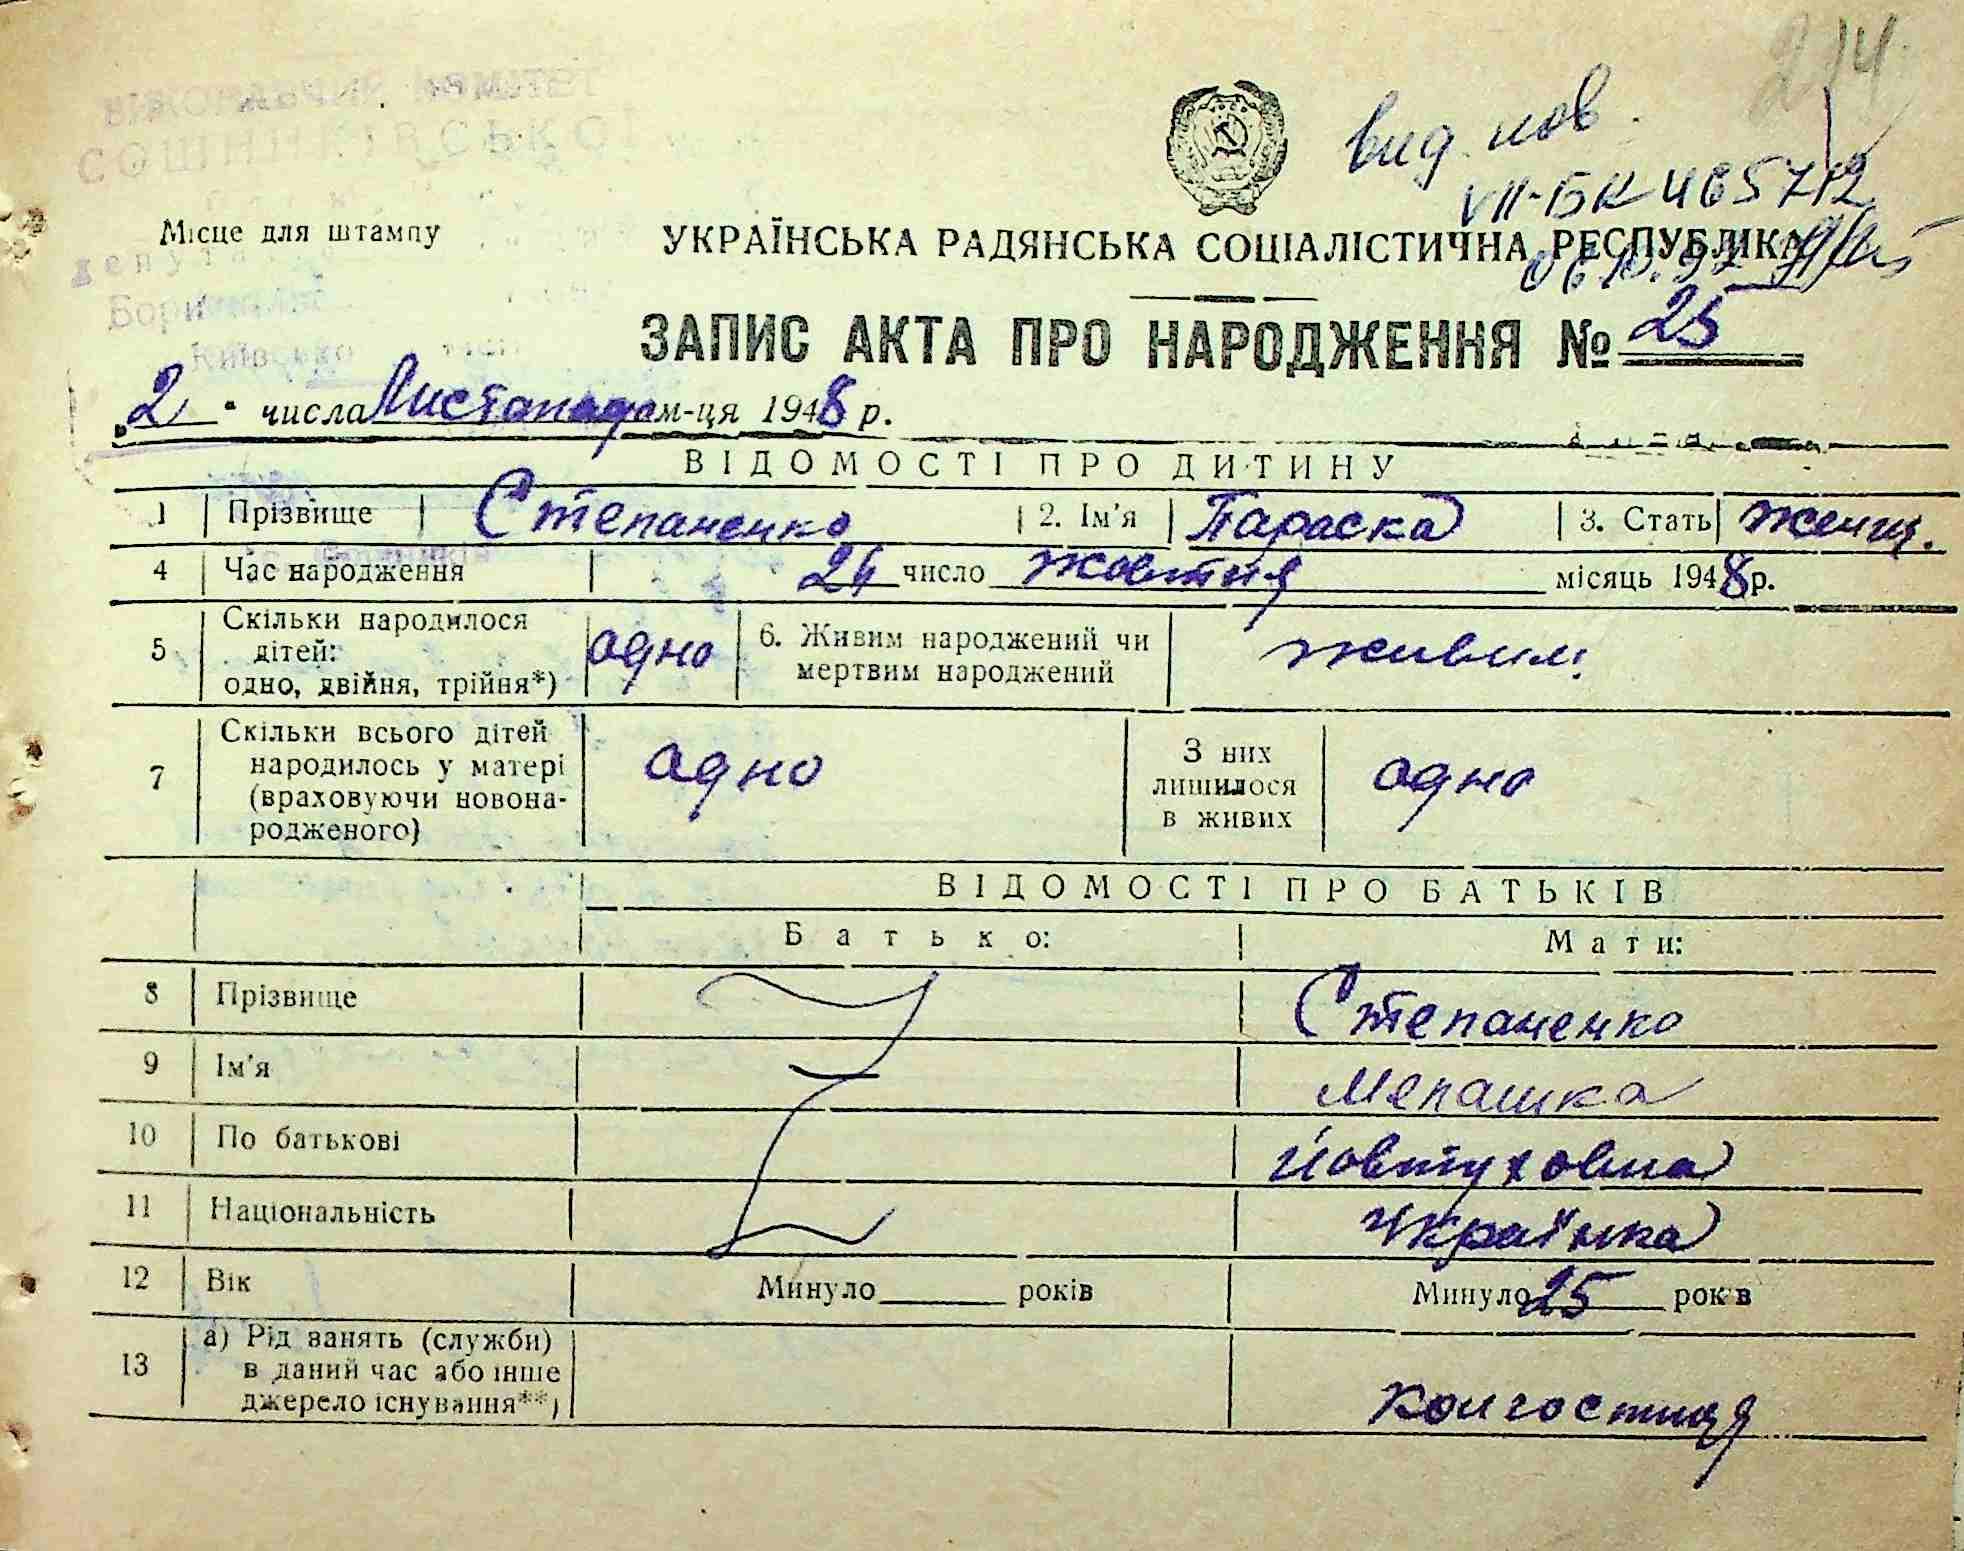 214
ВИКОНАВЧИЙ КОМІТЕТ
СОШНИКІВСЬКОЇ
вид. нов.
VII-БК 465712
Місце для штампу
УКРАЇНСЬКА РАДЯНСЬКА СОЦІАЛІСТИЧНА РЕСПУБЛІКА
06.10.97
ЗАПИС АКТА ПРО НАРОДЖЕННЯ № 25
„2" числа Листопада м-ця 1948 р.
ВІДОМОСТІ ПРО ДИТИНУ
1 Прізвище Степаненко 2. Ім'я Параска 3. Стать жіноч.
4 Час народження 24 число жовтня місяць 1948 р.
5 Скільки народилося дітей: одно, двійня, трійня*) одно 6. Живим народжений чи мертвим народжений живим
7 Скільки всього дітей народилось у матері (враховуючи новонародженого) одно З них лишилося в живих одно
ВІДОМОСТІ ПРО БАТЬКІВ
Батько: Мати:
8 Прізвище Степаненко
9 Ім'я Мелашка
10 По батькові Йовтуховна
11 Національність Українка
12 Вік Минуло років Минуло 25 років
13 а) Рід занять (служби) в даний час або інше джерело існування**) колгоспниця